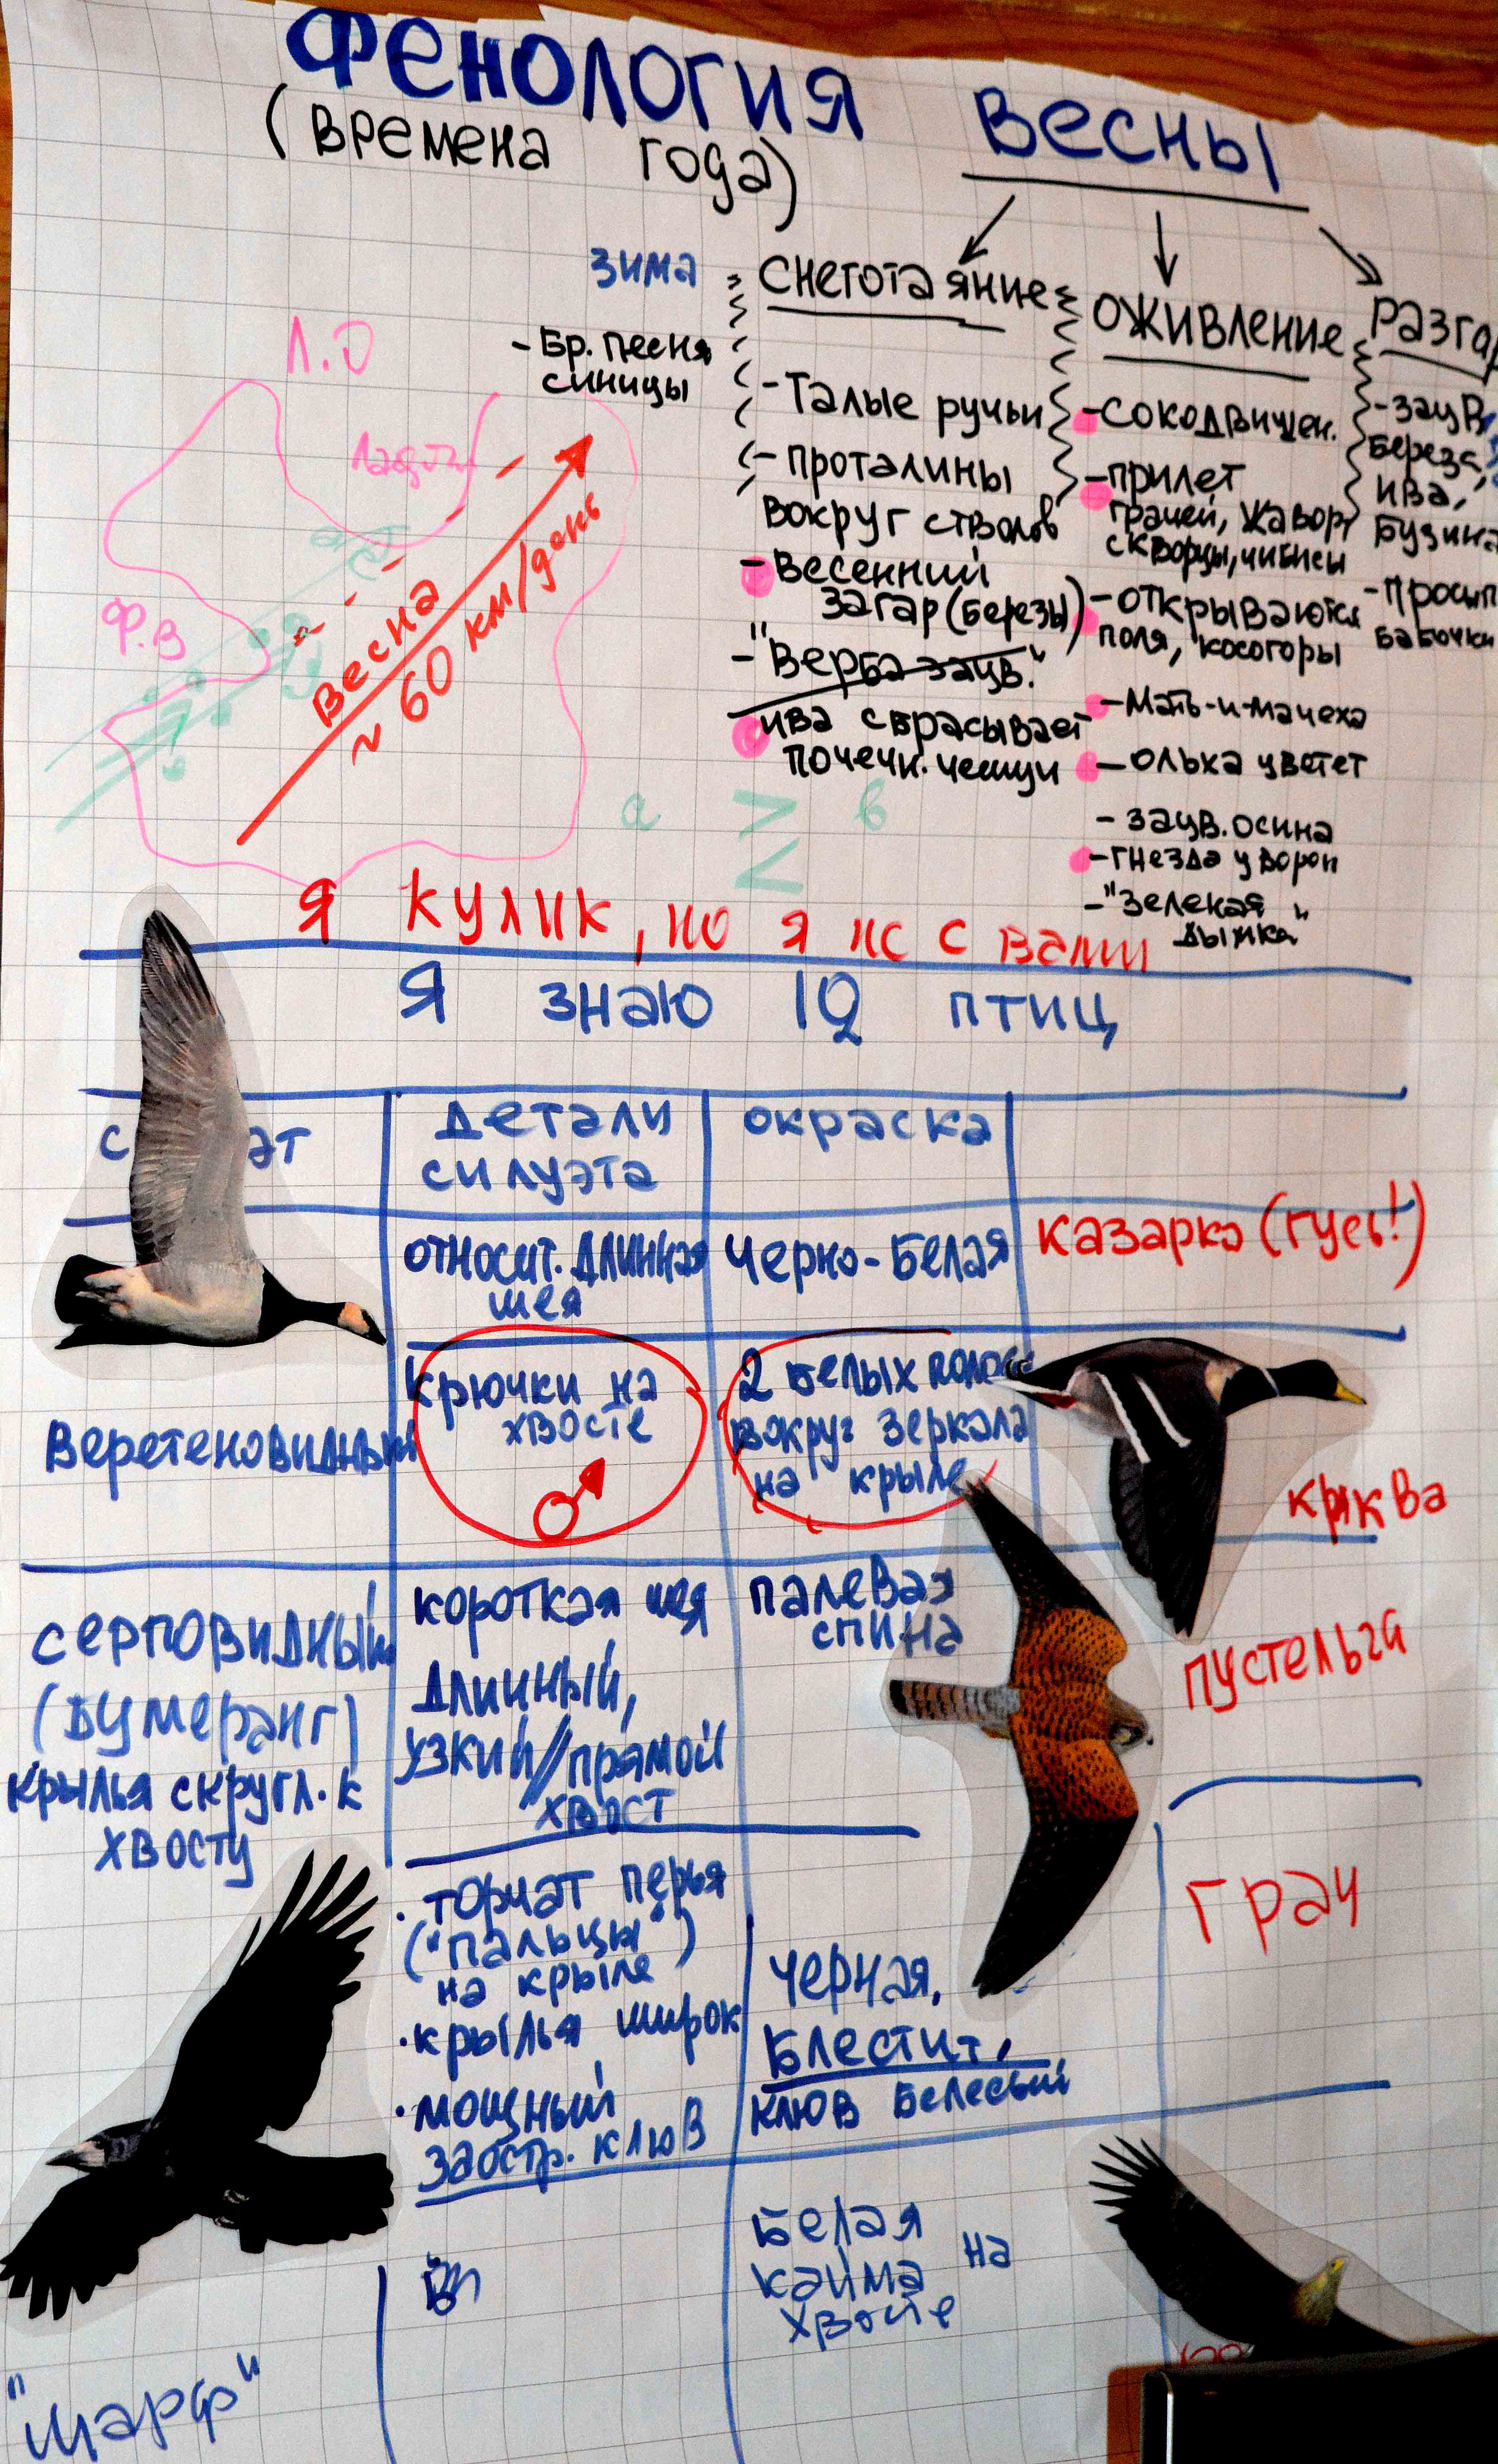 Фенология весны
(времена года)
зима
- Бр. песня
синицы
снеготаяние
- Талые ручьи
- проталины
вокруг стволов
- весенний
загар (березы)
- "Верба зацв."
ива сбрасывает
почечн. чешуи
оживление
- сокодвижен.
- прилет
грачей, жавор,
скворцы, чибисы
- открываются
поля, косогоры
- Мать-и-мачеха
- ольха цветет
- зацв. осина
- гнезда у ворон
- "Зеленая
дымка"
разга
- зацв.
береза,
ива,
бузина
- просып
бабочки
Л.О
Ф.В
Весна
~ 60 км/день
а ≥ в
≤
Я кулик, но я не с вами
Я знаю 12 птиц
детали
силуэта
окраска
относит. длинная
шея
черно-белая
казарка (гусь!)
Веретеновидный
крючки на
хвосте
♂
2 белых полосы
вокруг зеркала
на крыле
кряква
серповидный
(бумеранг)
крылья скругл. к
хвосту
короткая шея
длинный,
узкий//прямой
хвост
палевая
спина
пустельга
· торчат перья
("пальцы")
на крыле
· крылья широк
· мощный
заостр. клюв
черная,
блестит,
клюв белесый
грач
"шарф"
белая
кайма на
хвосте